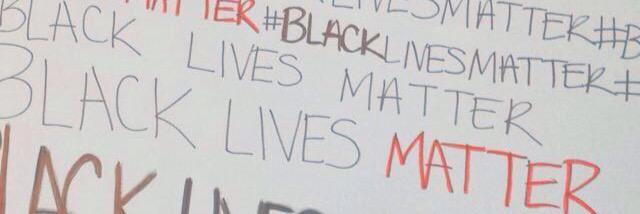 MATTER#BLACKLIVESMATTER#
LIVESMATTER#B
BLACK LIVES MATTER
BLACK LIVES MATTER
BLACK LIVES